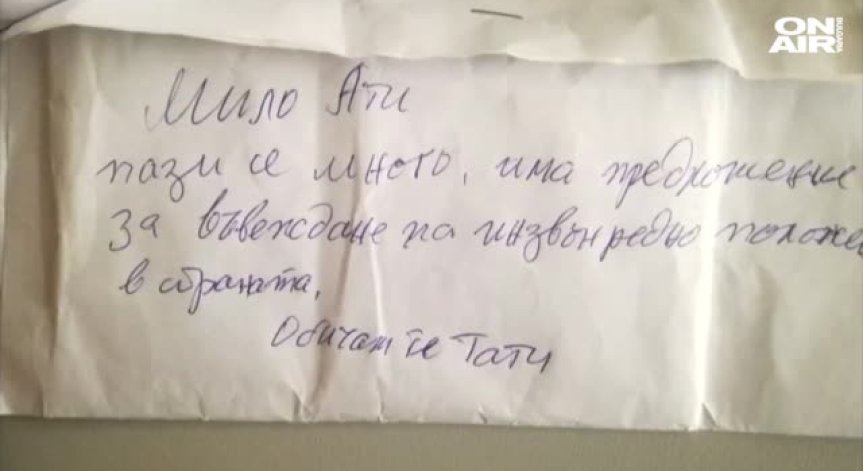 ON
AIR
BULGARIA
Мило Ати
пази се много, има предложение
за въвеждане на инзвънредно положе
в страната,
Обичам те Тати